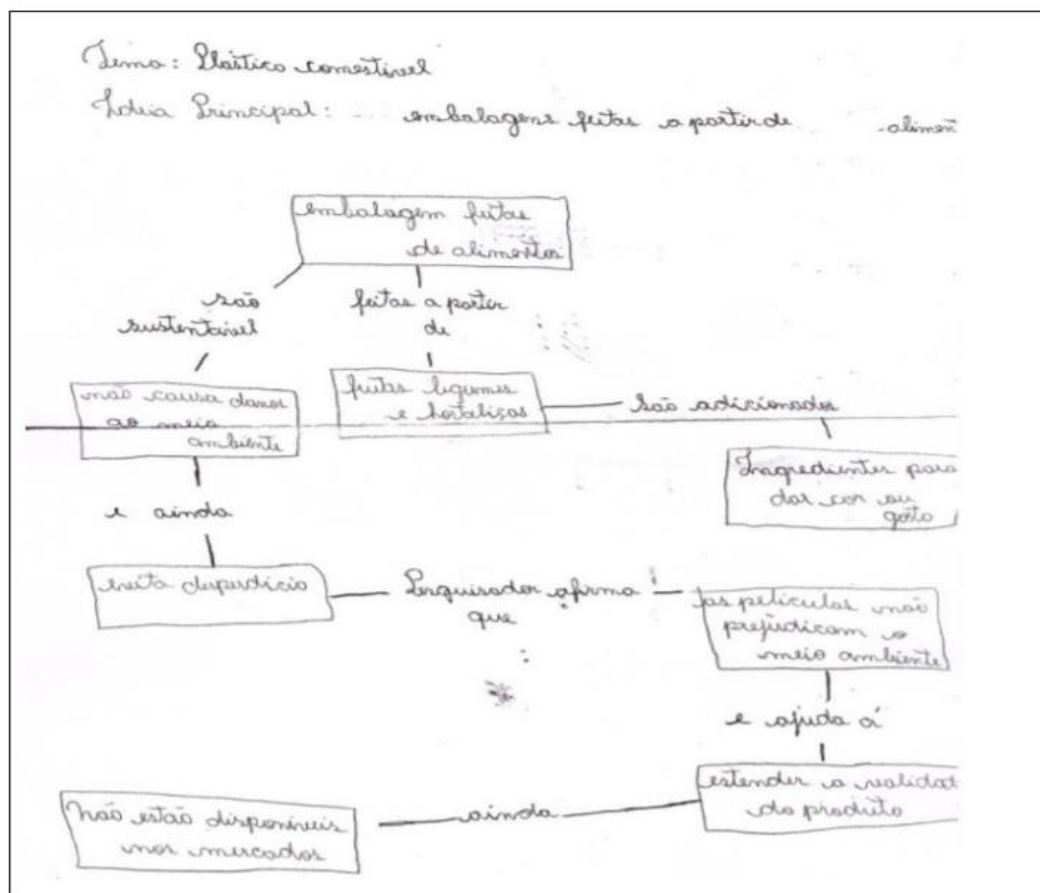 Tema: Plástico comestível
Ideia Principal: embalagens feitas a partir de alimen
embalagem feitas
de alimentos
são
sustentável
feitas a partir
de
não causa danos
ao meio
ambiente
frutas legumes
e hortaliças
são adicionados
Ingredientes para
dar cor ou
gosto
e ainda
evita disperdício
Pesquisador afirma
que
as películas não
prejudicam o
meio ambiente
e ajuda á
estender a
do produto
ainda
não estão disponíveis
nos mercados